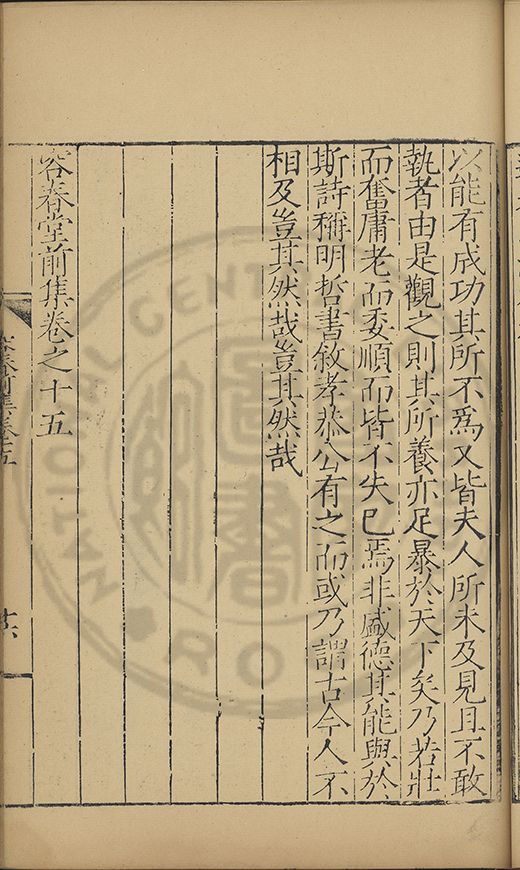 以能有成功其所不爲又皆夫人所未及見且不敢
執者由是觀之則其所養亦足暴於天下矣乃若壯
而奮庸老而委順而皆不失已焉非盛德其能與於
斯詩稱明哲書敘孝恭公有之而或乃謂古今人不
相及豈其然哉豈其然哉
容春堂前集卷之十五
容春前集卷十五